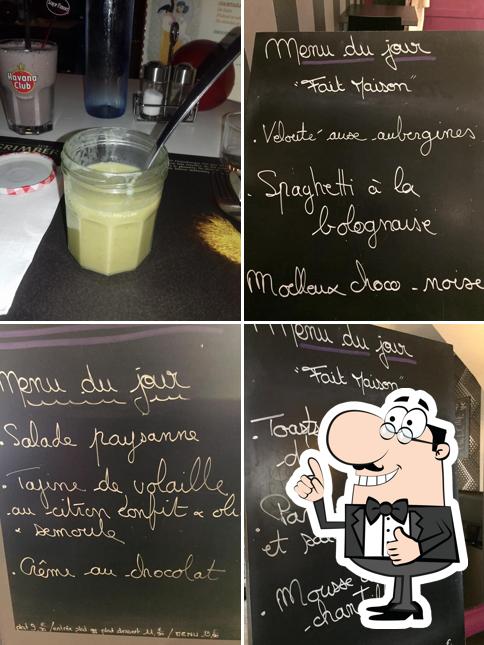 Havana
Club
GRIMBER
Menu du jour
"Fait Maison"
. Velouté aux aubergines
. Spaghetti à la
bolognaise
Moelleux choco - noise
Menu du jour
. Salade paysanne
. Tajine de volaille
au citron confit & oli
& semoule
. Crème au chocolat
Menu du jour
"Fait Maison"
. Toasts
et
. Mousse